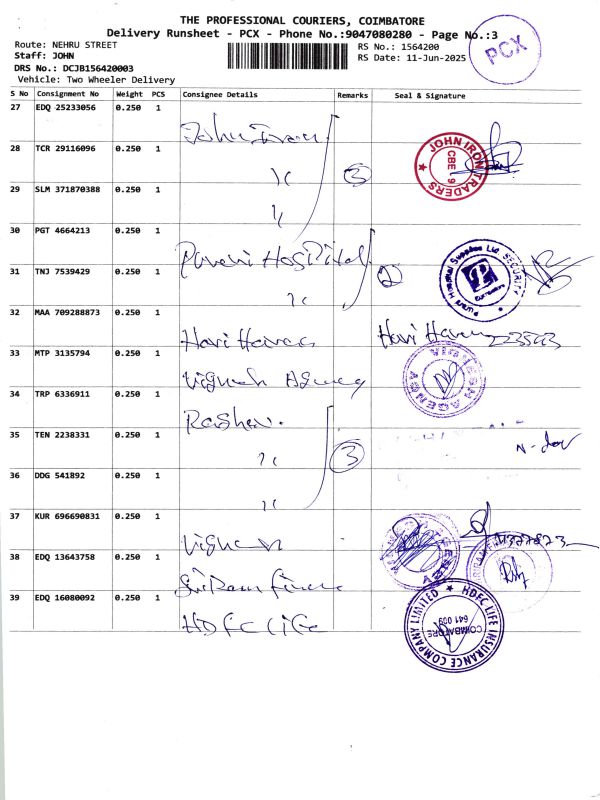 THE PROFESSIONAL COURIERS, COIMBATORE
Delivery Runsheet - PCX - Phone No.:9047080280 - Page No.:3
Route: NEHRU STREET
Staff: JOHN
DRS No.: DCJB156420003
Vehicle: Two Wheeler Delivery
RS No.: 1564200
RS Date: 11-Jun-2025
PCX
S No Consignment No Weight PCS Consignee Details Remarks Seal & Signature
27 EDQ 25233056 0.250 1
John Iron
28 TCR 29116096 0.250 1
3
JOHN IRON TRADERS CBE 9
29 SLM 371870388 0.250 1
30 PGT 4664213 0.250 1
Hospital
31 TNJ 7539429 0.250 1
2
Hospital Supplies Ltd SECURITY
32 MAA 709288873 0.250 1
Hari
Hari
33 MTP 3135794 0.250 1
Vignesh Agency
VIGNESH AGENCY
34 TRP 6336911 0.250 1
35 TEN 2238331 0.250 1
3
N-dev
36 DDG 541892 0.250 1
37 KUR 696690831 0.250 1
Vignesh
38 EDQ 13643758 0.250 1
39 EDQ 16080092 0.250 1
HDFC Life
HDFC LIFE INSURANCE COMPANY LIMITED
COIMBATORE